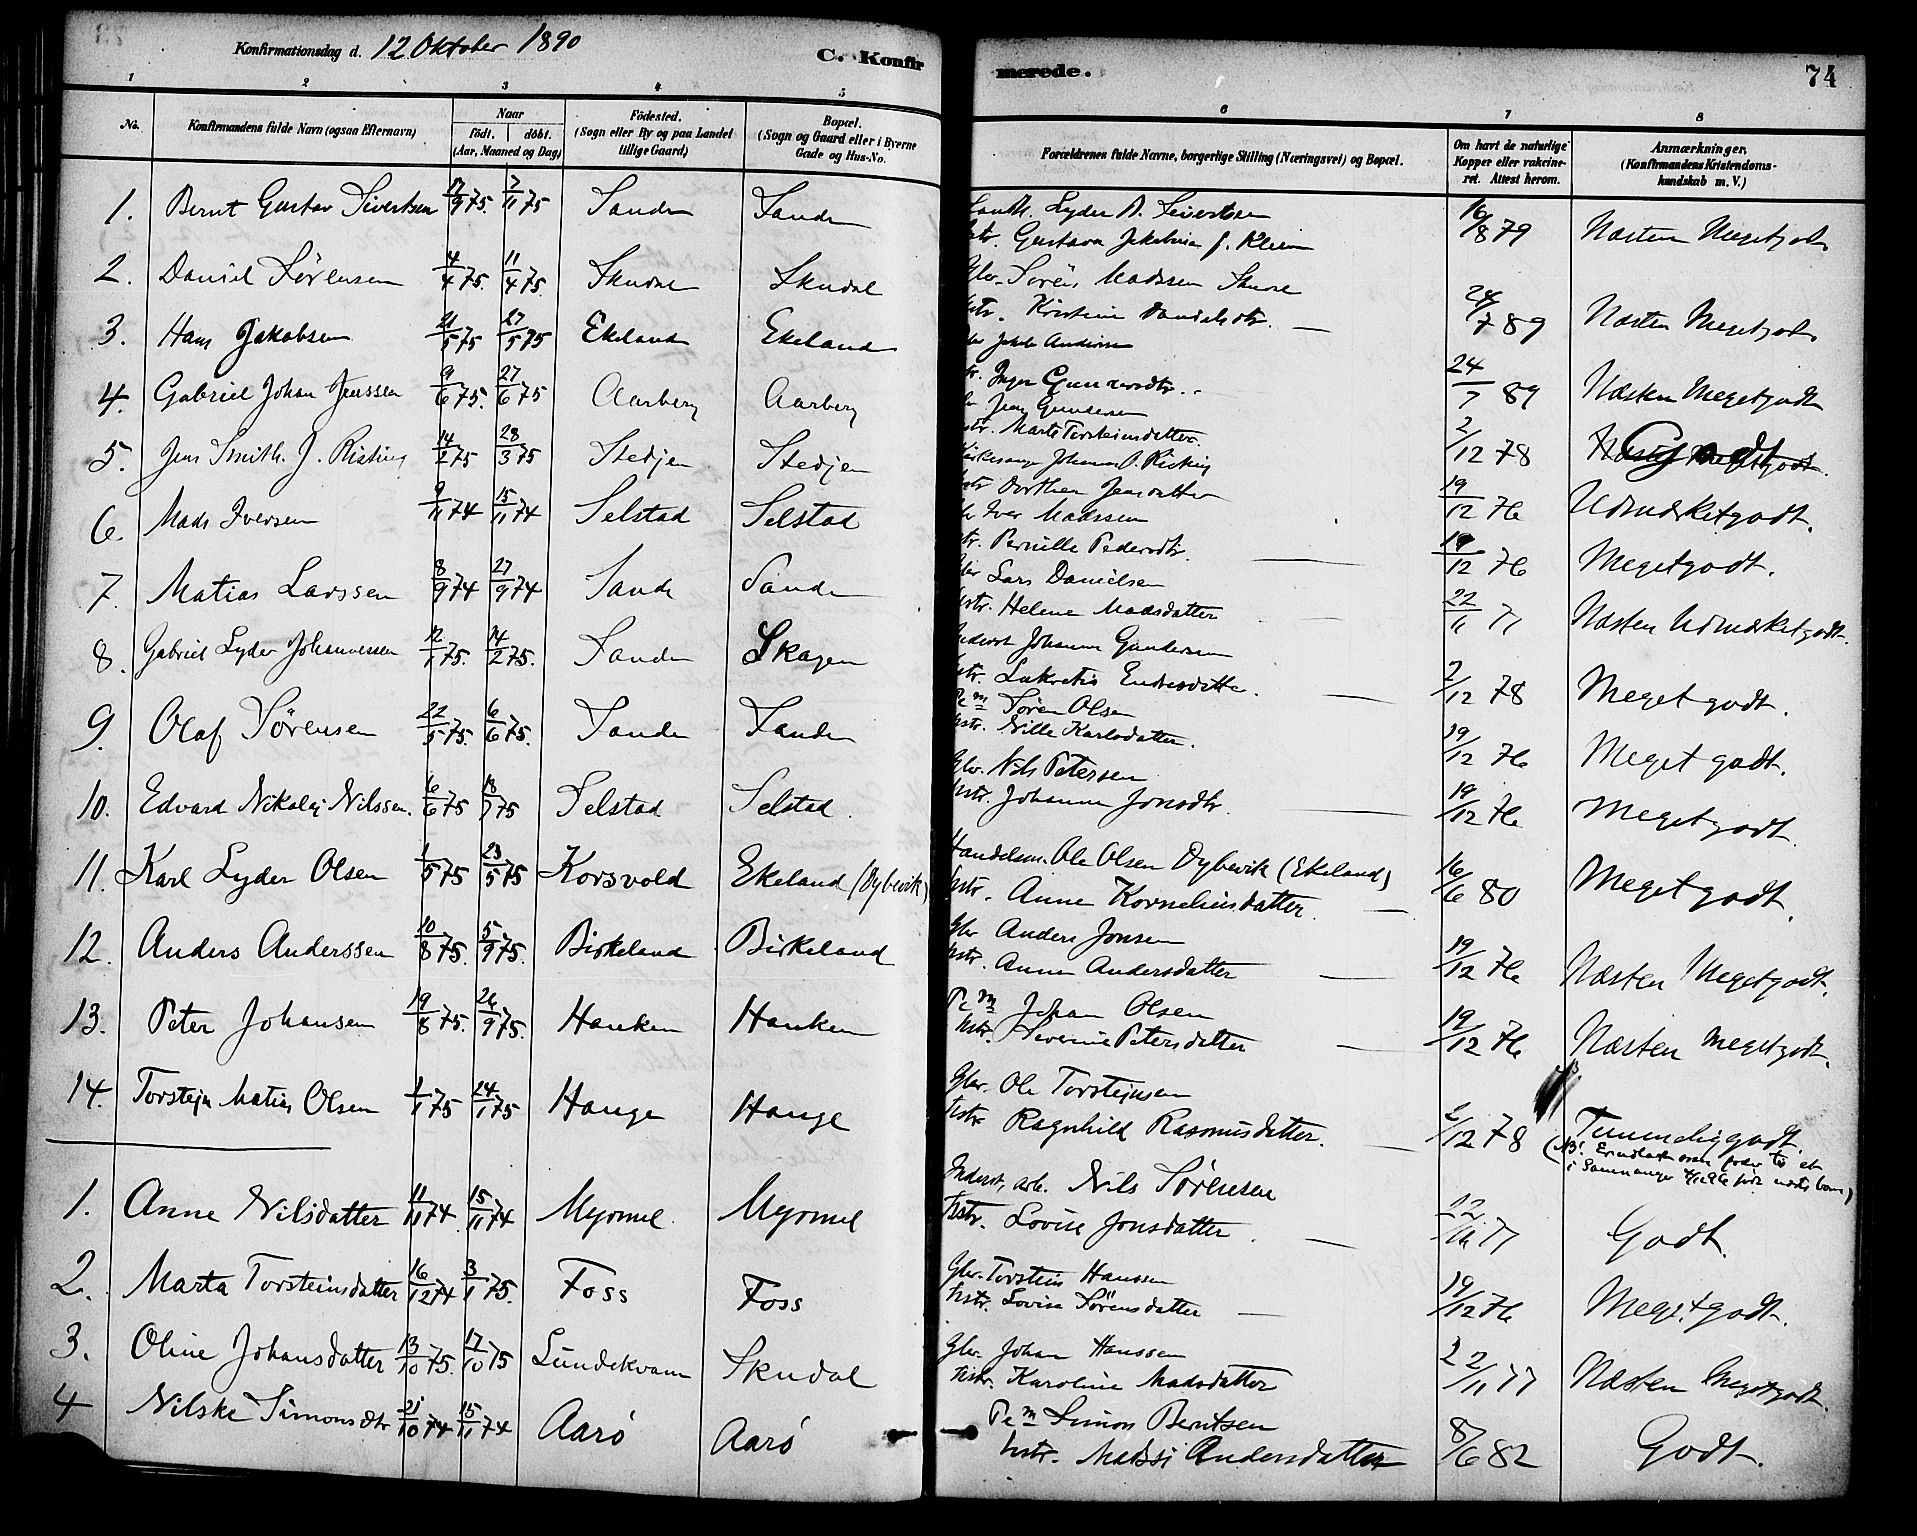 Konfirmationsdag d. 12 Oktober 1890
C. Konfirmerede.
74
1 2 3 4 5 6 7 8
No.
Konfirmandens fulde Navn (ogsaa Efternavn)
Naar
født. døbt.
(Aar, Maaned og Dag)
Fødested.
(Sogn eller By og paa Landet
tillige Gaard)
Bopæl.
(Sogn og Gaard eller i Byerne
Gade og Hus-No.
Forældrenes fulde Navne, borgerlige Stilling (Næringsvei) og Bopæl.
Om havt de naturlige
Kopper eller vakcine-
ret. Attest herom.
Anmærkninger,
(Konfirmandens Kristendoms-
kundskab m. V.)
1. Bernt Gustav Sivertsen 12/9 75. 7/11 75 Sanden Sanden
Lyder A. Sivertsen
Gustava Jakobine f. Klein
16/8 79 Næsten Meget godt
2. Daniel Sørensen 4/4 75. 11/4 75. Skudal Skudal
Gbr. Sören Madssen
Hstr. Kristine Danielsdtr.
24/7 89 Næsten Meget godt
3. Hans Jakobsen 21/5 75 27/5 75 Ekeland Ekeland
Jakob Andersen
Inger Gunnarsdtr.
24/7 89 Næsten Meget godt
4. Gabriel Johan Jenssen 9/6 75. 27/6 75 Aarberg Aarberg
Jens Gundersen
Marte Torsteinsdatter
2/12 78 Godt
5. Jens Smith J. Risting 14/2 75 28/3 75 Stedjen Stedjen
Kirkesanger Johannes O. Risting
Dorthea Jensdatter
19/12 76 Udmærket godt.
6. Mads Iversen 9/11 74 15/11 74 Selstad Selstad
Iver Madssen
Hstr. Pernille Pedersdtr.
19/12 76 Meget godt.
7. Matias Larssen 8/9 74 27/9 74 Sande Sanden
Gbr Lars Danielsen
Hstr. Helene Madsdatter
22/11 77 Næsten Udmærket godt.
8. Gabriel Lyder Johannessen 12/1 75. 14/2 75. Sanden Skagen
Inderst Johannes Gundersen
Hstr. Lukretia Endresdatter.
2/12 78 Meget godt.
9. Olaf Sørensen 22/5 75. 6/6 75. Sanden Sanden
Pm Sören Olsen
Hstr. Nille Karlsdatter.
19/12 76 Meget godt.
10. Edvard Nikolaj Nilssen. 6/6 75 18/7 75 Selstad Selstad.
Gbr. Nils Petersen
Hstr. Johanna Jonsdtr.
19/12 76 Meget godt.
11. Karl Lyder Olsen 1/5 75 23/5 75 Korsvold Ekeland (Dybevik)
Handelsm. Ole Olsen Dybevik (Ekeland)
Hstr. Anne Korneliusdatter
16/6 80 Meget godt.
12. Anders Anderssen 10/8 75. 5/9 75. Birkeland Birkeland
Gbr Anders Jonsen
Hstr. Anne Andersdatter
19/12 76 Næsten Meget godt.
13. Peter Johansen 19/8 75. 26/9 75. Hauken Hauken
Pm Johan Olsen
Hstr. Severine Petersdatter
19/12 76 Næsten meget godt.
14. Torstein Matias Olsen 1/1 75 24/1 75 Hauge Hauge
Gbr. Ole Torsteinsen
Hstr Ragnhild Rasmusdatter.
2/12 78 Temmelig godt.
1. Anne Nilsdatter 11/11 74 15/11 74 Myrmel. Myrmel
Inderst, arb. Nils Sørensen
Hstr. Lovise Jonsdatter.
22/11 77 Godt.
2. Marta Torsteinsdatter 16/12 74 3/1 75. Foss Foss
Gbr. Torstein Hanssen
Hstr. Lovise Sörensdatter
19/12 76 Meget godt.
3. Oline Johansdatter 13/10 75. 17/10 75 Lundekvam Skudal
Gbr. Johan Hanssen
Hstr. Karoline Madsdatter
22/11 77 Næsten Meget godt.
4 Nilske Simonsdtr 21/10 74 15/11 74 Aarø Aarø
Pm Simon Berntsen
Hstr. Madssi Andersdatter
8/6 82 Godt.